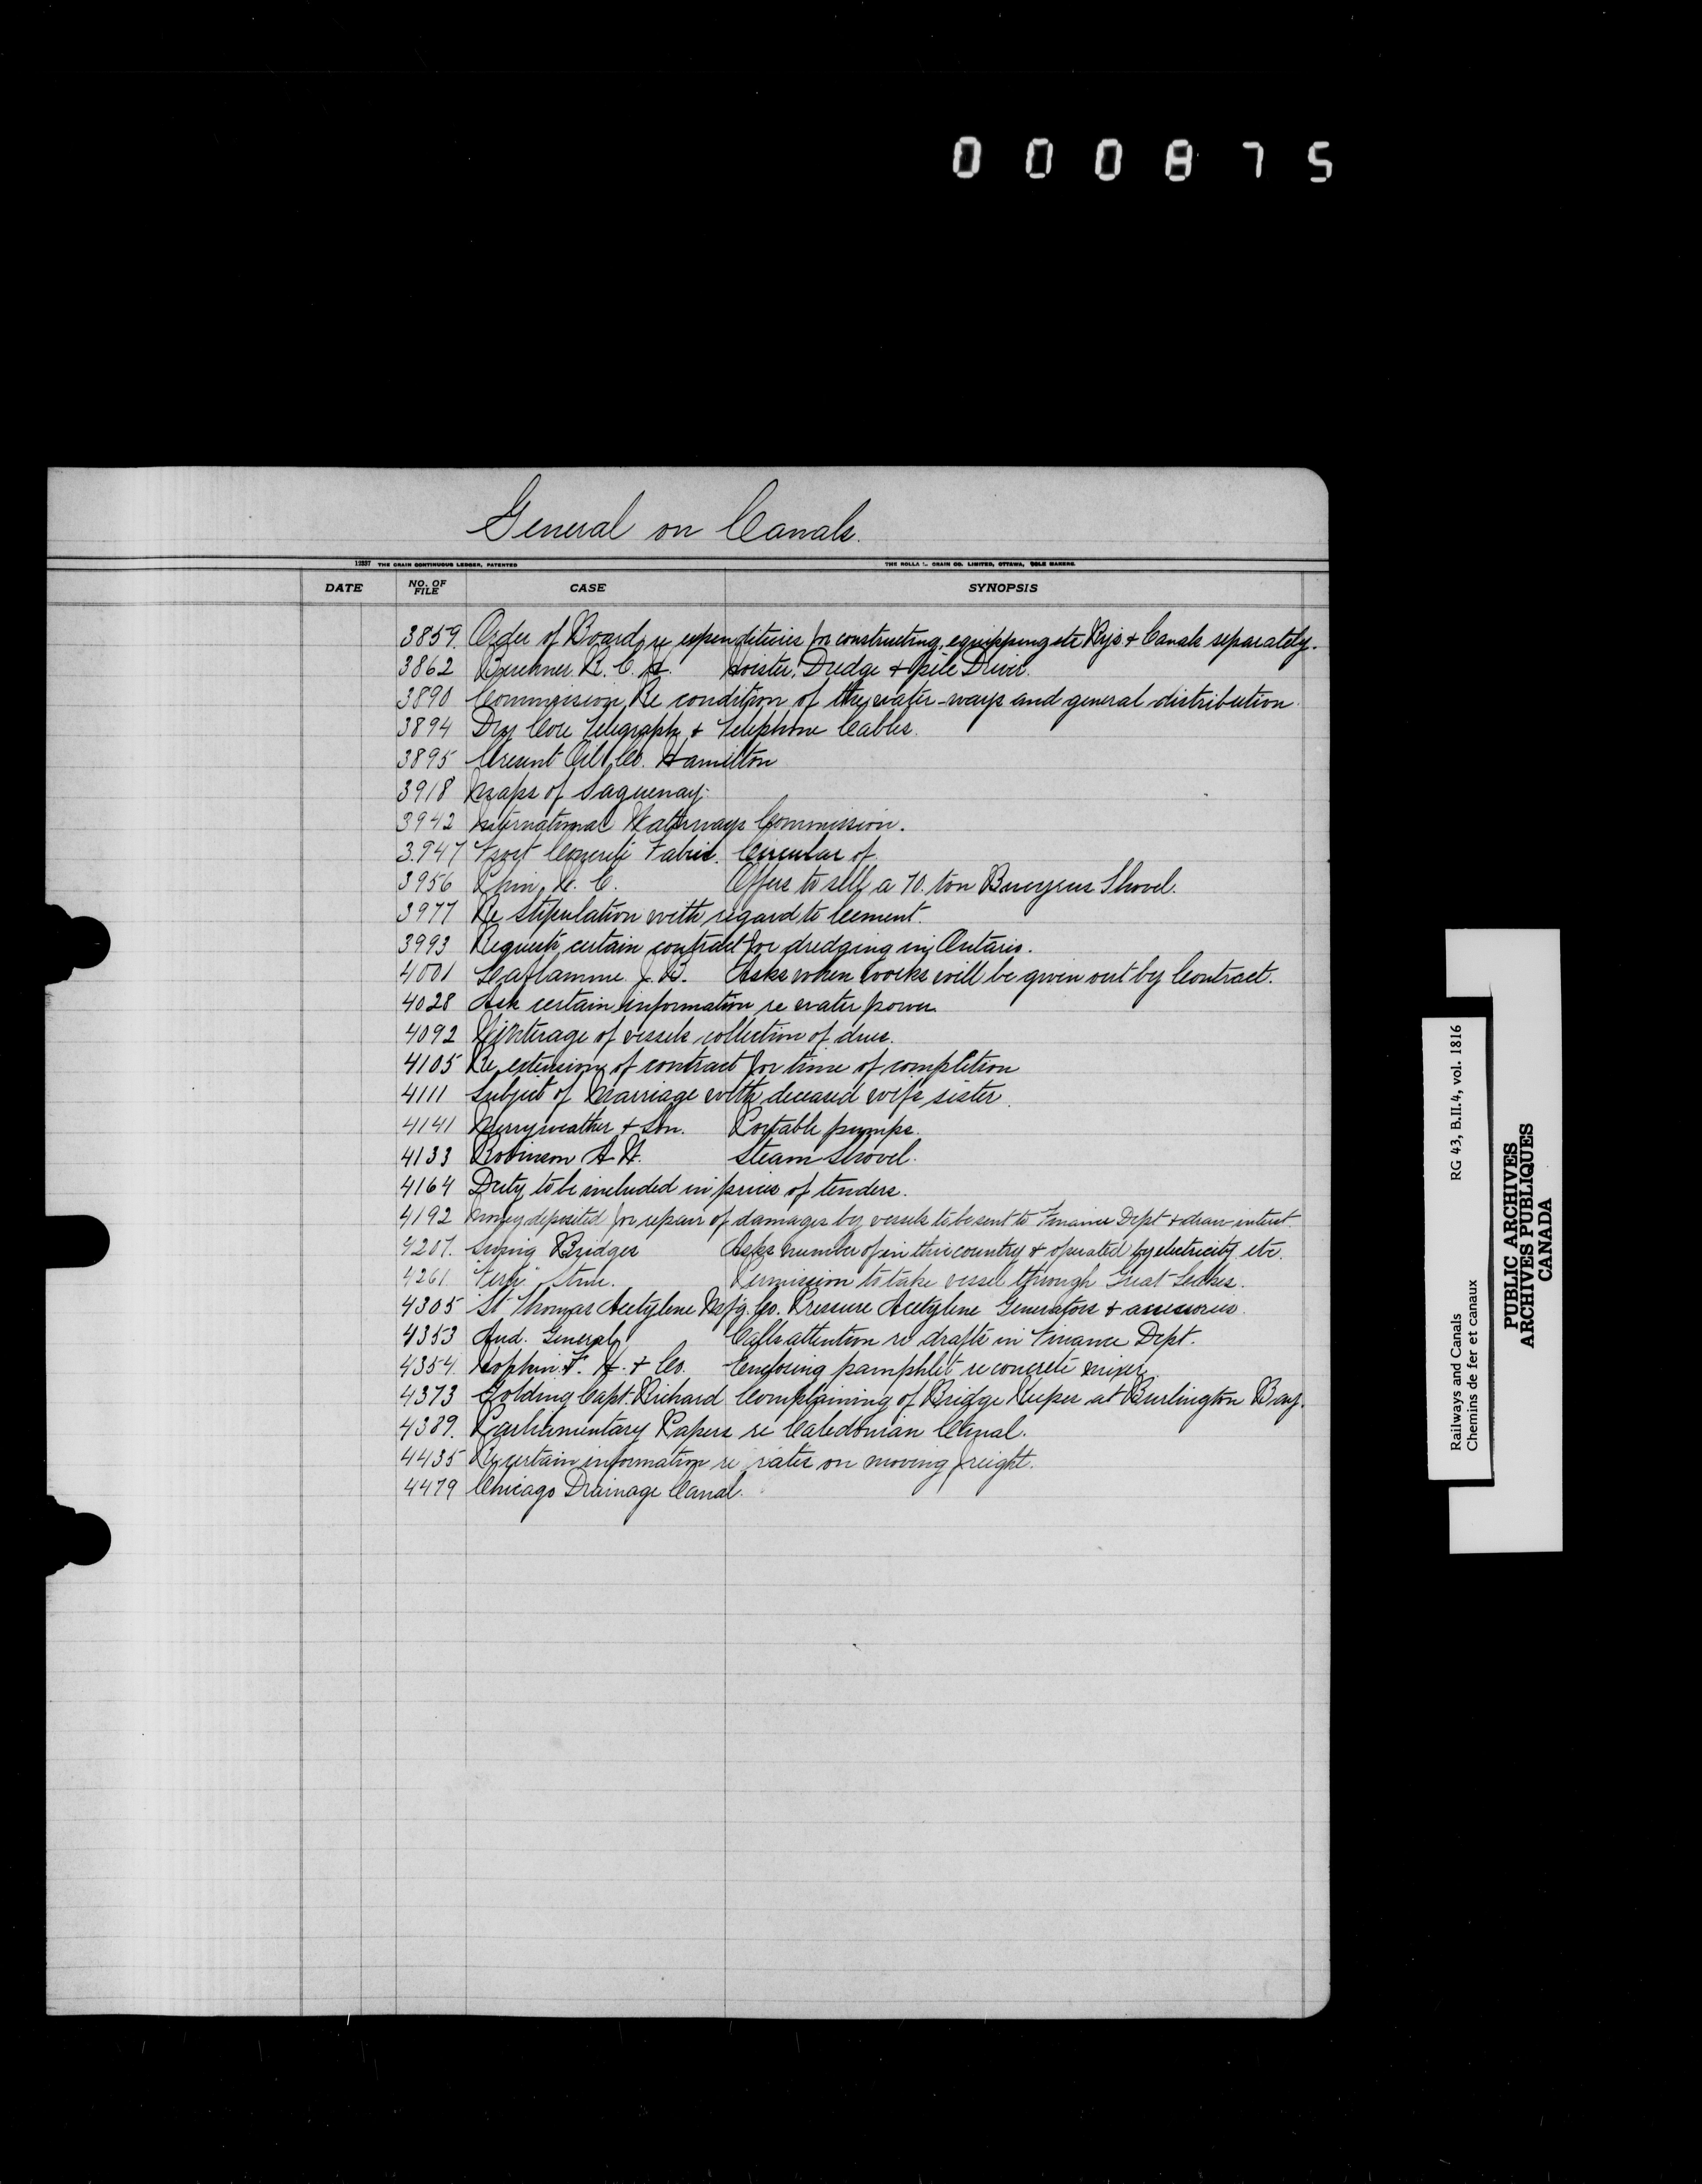 000875
General on Canals.
12337 THE CRAIN CONTINUOUS LEDGER, PATENTED THE ROLLA L. CRAIN CO. LIMITED, OTTAWA, SOLE MAKERS.
DATE NO. OF FILE CASE SYNOPSIS
3859. Order of Board, re expenditures for constructing, equipping etc Rys & Canals separately.
3862 R. C. H. Hoister, Dredge & pile Driver.
3890 Commission, Re condition of the water-ways and general distribution.
3894 Dry Core Telegraph & Telephone Cables.
3895 Cresent Oil Co. Hamilton
3918 Maps of Saguenay.
3942 International Waterways Commission.
3947 Frost Concrete Fabric. Circular of.
3956 Phin, W. C. Offers to sell a 70. ton Bucyrus Shovel.
3977 Re Stipulation with regard to Cement.
3993 Requests certain contract for dredging in Ontario.
4001 Leaflamme J. Asks when works will be given out by Contract.
4028 Ask certain information re water power
4092 Winterage of vessels collection of dues.
4105 Re extension of contract for time of completion
4111 Subject of Marriage with deceased wife sister.
4141 Merryweather & Son. Portable pumps.
4133 Robinson A. W. Steam Shovel.
4164 Duty to be included in prices of tenders.
4192 Money deposited for repair of damages by vessels to be sent to Finance Dept & draw interst.
4207. Swing Bridges Asks number of in this country & operated by electricity etc.
4261 Str. Permission to take vessel through Great Lakes.
4305 St Thomas Acetylene Mfg. Co. Pressure Acetylene Generators & assessories.
4353 Aud. General Calls attention re drafts in Finance Dept.
4354. Hopkin F. H. & Co. Enclosing pamphlet re concrete mixer.
4373 Golding Capt. Richard Complaining of Bridge Keeper at Burlington Bay.
4389. Parliamentary Papers re Caledonian Canal.
4435 Re certain information re rates on moving freight.
4479 Chicago Drainage Canal.
Railways and Canals RG 43, B.II.4, vol. 1816
Chemins de fer et canaux
PUBLIC ARCHIVES
ARCHIVES PUBLIQUES
CANADA